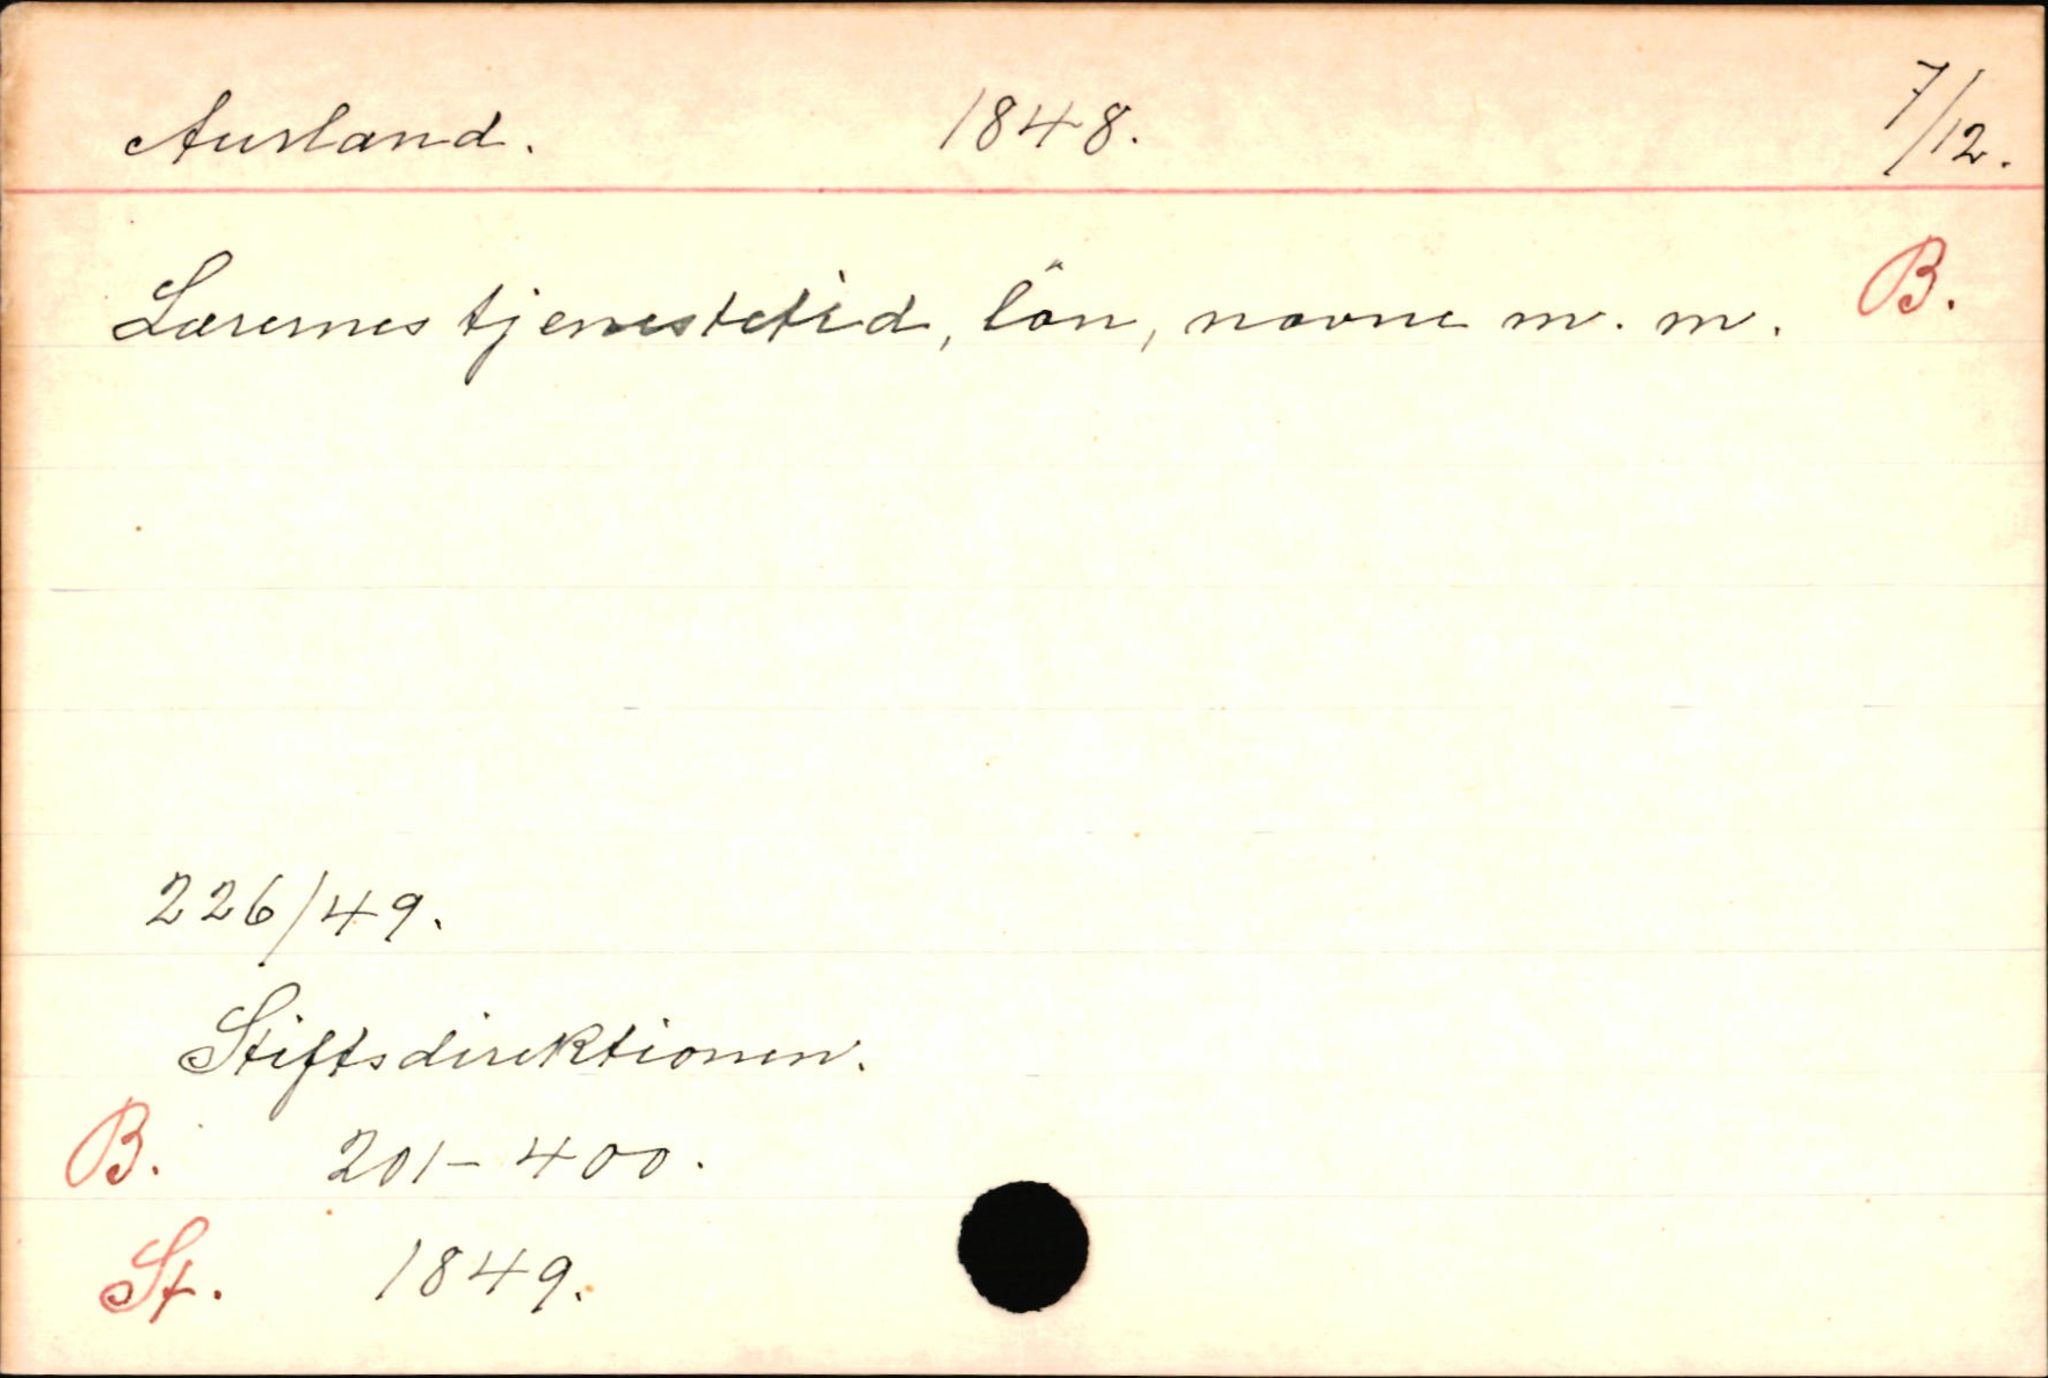 Aurland. 1848. 7/12.
Lærernes tjenestetid, lön, navne m. m. B.
226/49.
Stiftsdirektionen.
B. 201-400.
St. 1849.